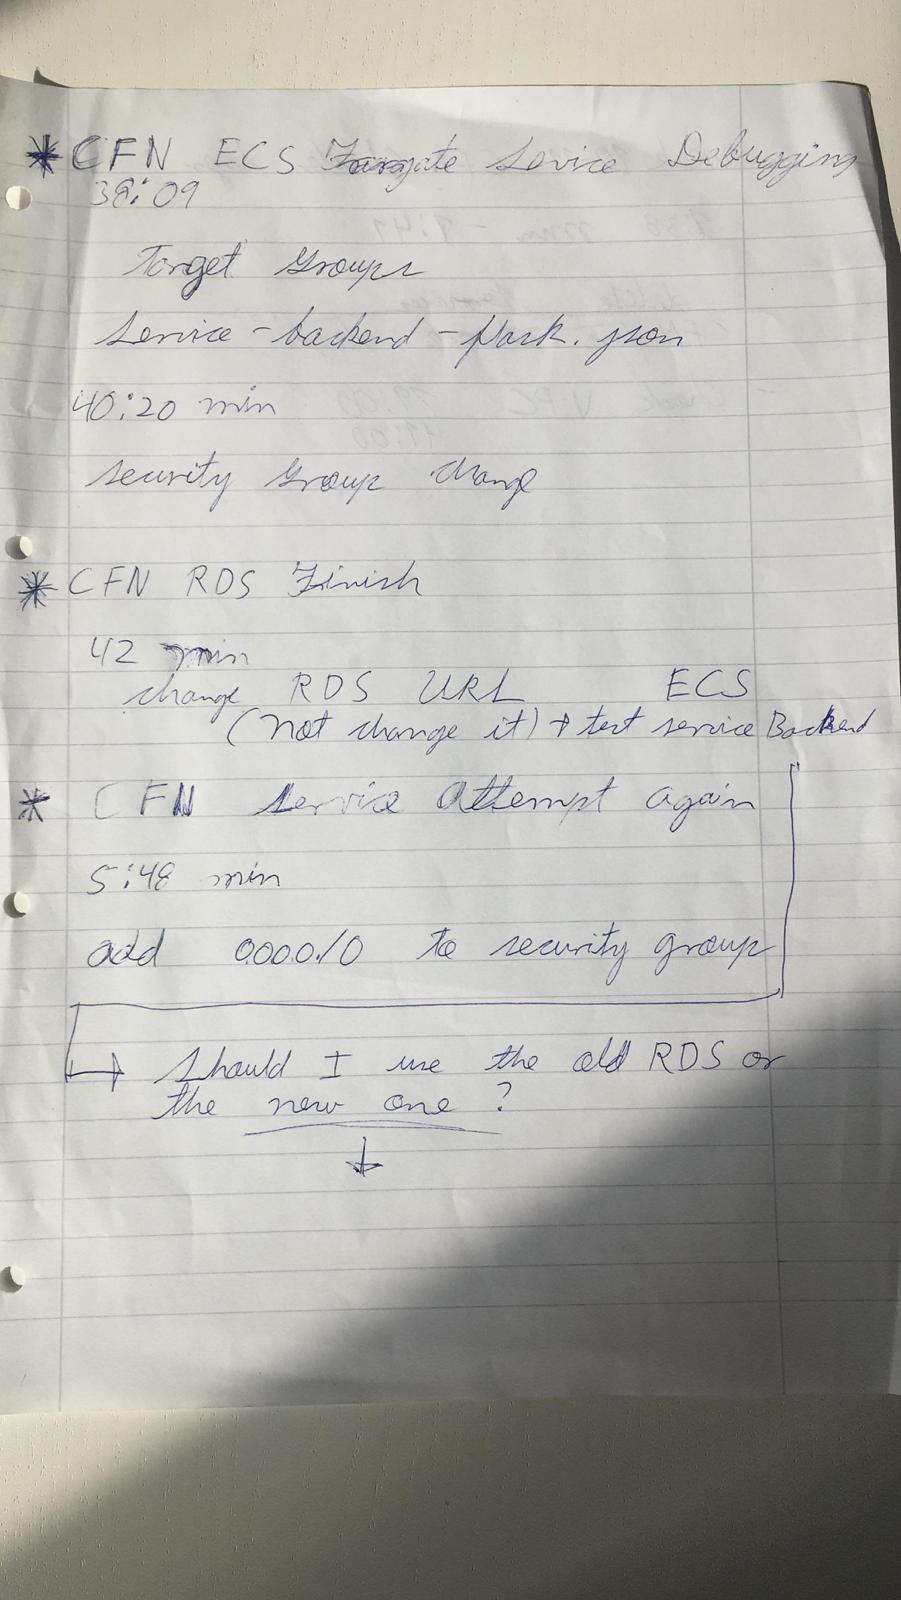 * CFN ECS Fargate Service Debugging
38:09
Target Groups
Service-backend-flask.json
40:20 min
security group change
* CFN RDS Finish
42 min
change RDS URL ECS
(not change it) → test service Backend
* CFN Service Attempt again
5:48 min
add 0.0.0.0/0 to security group
↳ Should I use the old RDS or
the new one ?
↓